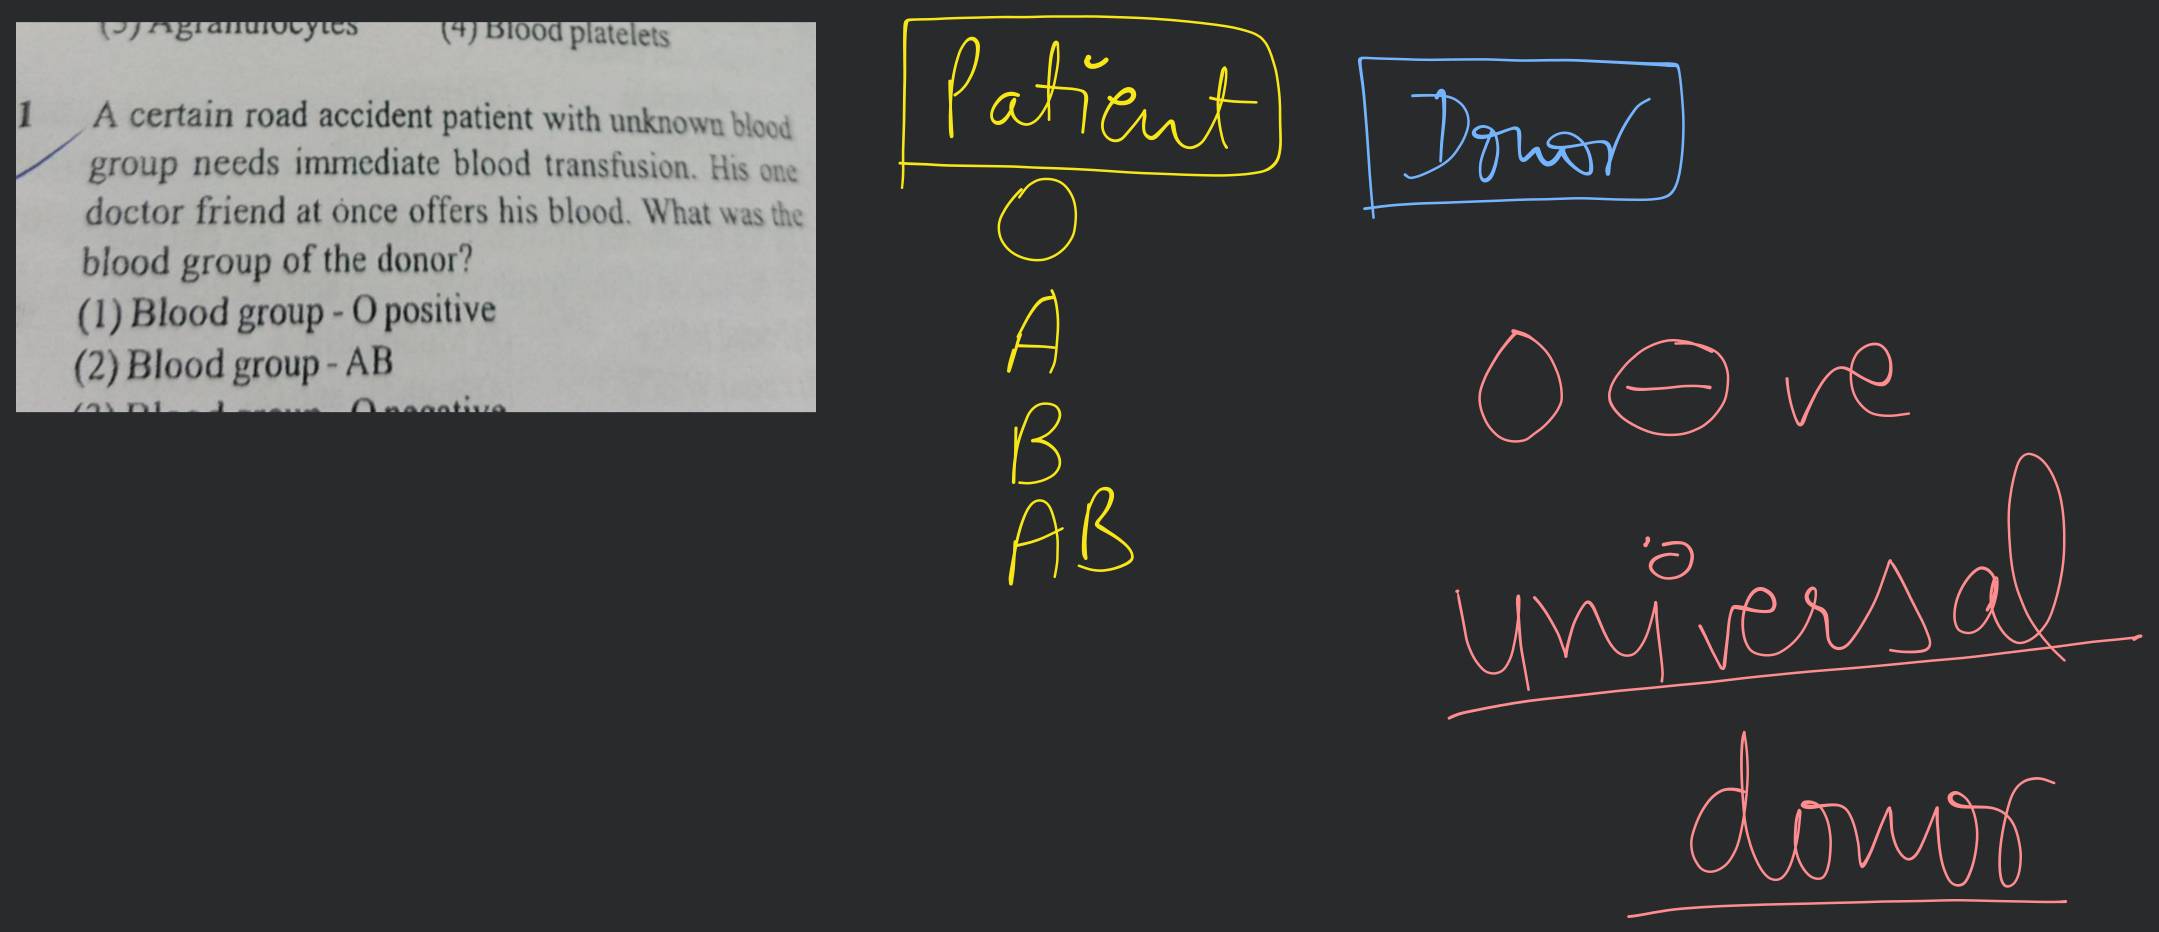 (3) Agranulocytes (4) Blood platelets
1 A certain road accident patient with unknown blood
group needs immediate blood transfusion. His one
doctor friend at once offers his blood. What was the
blood group of the donor?
(1) Blood group - O positive
(2) Blood group - AB
(3) Blood group - O negative
Patient
O
A
B
AB
Donor
O - ve
universal
donor